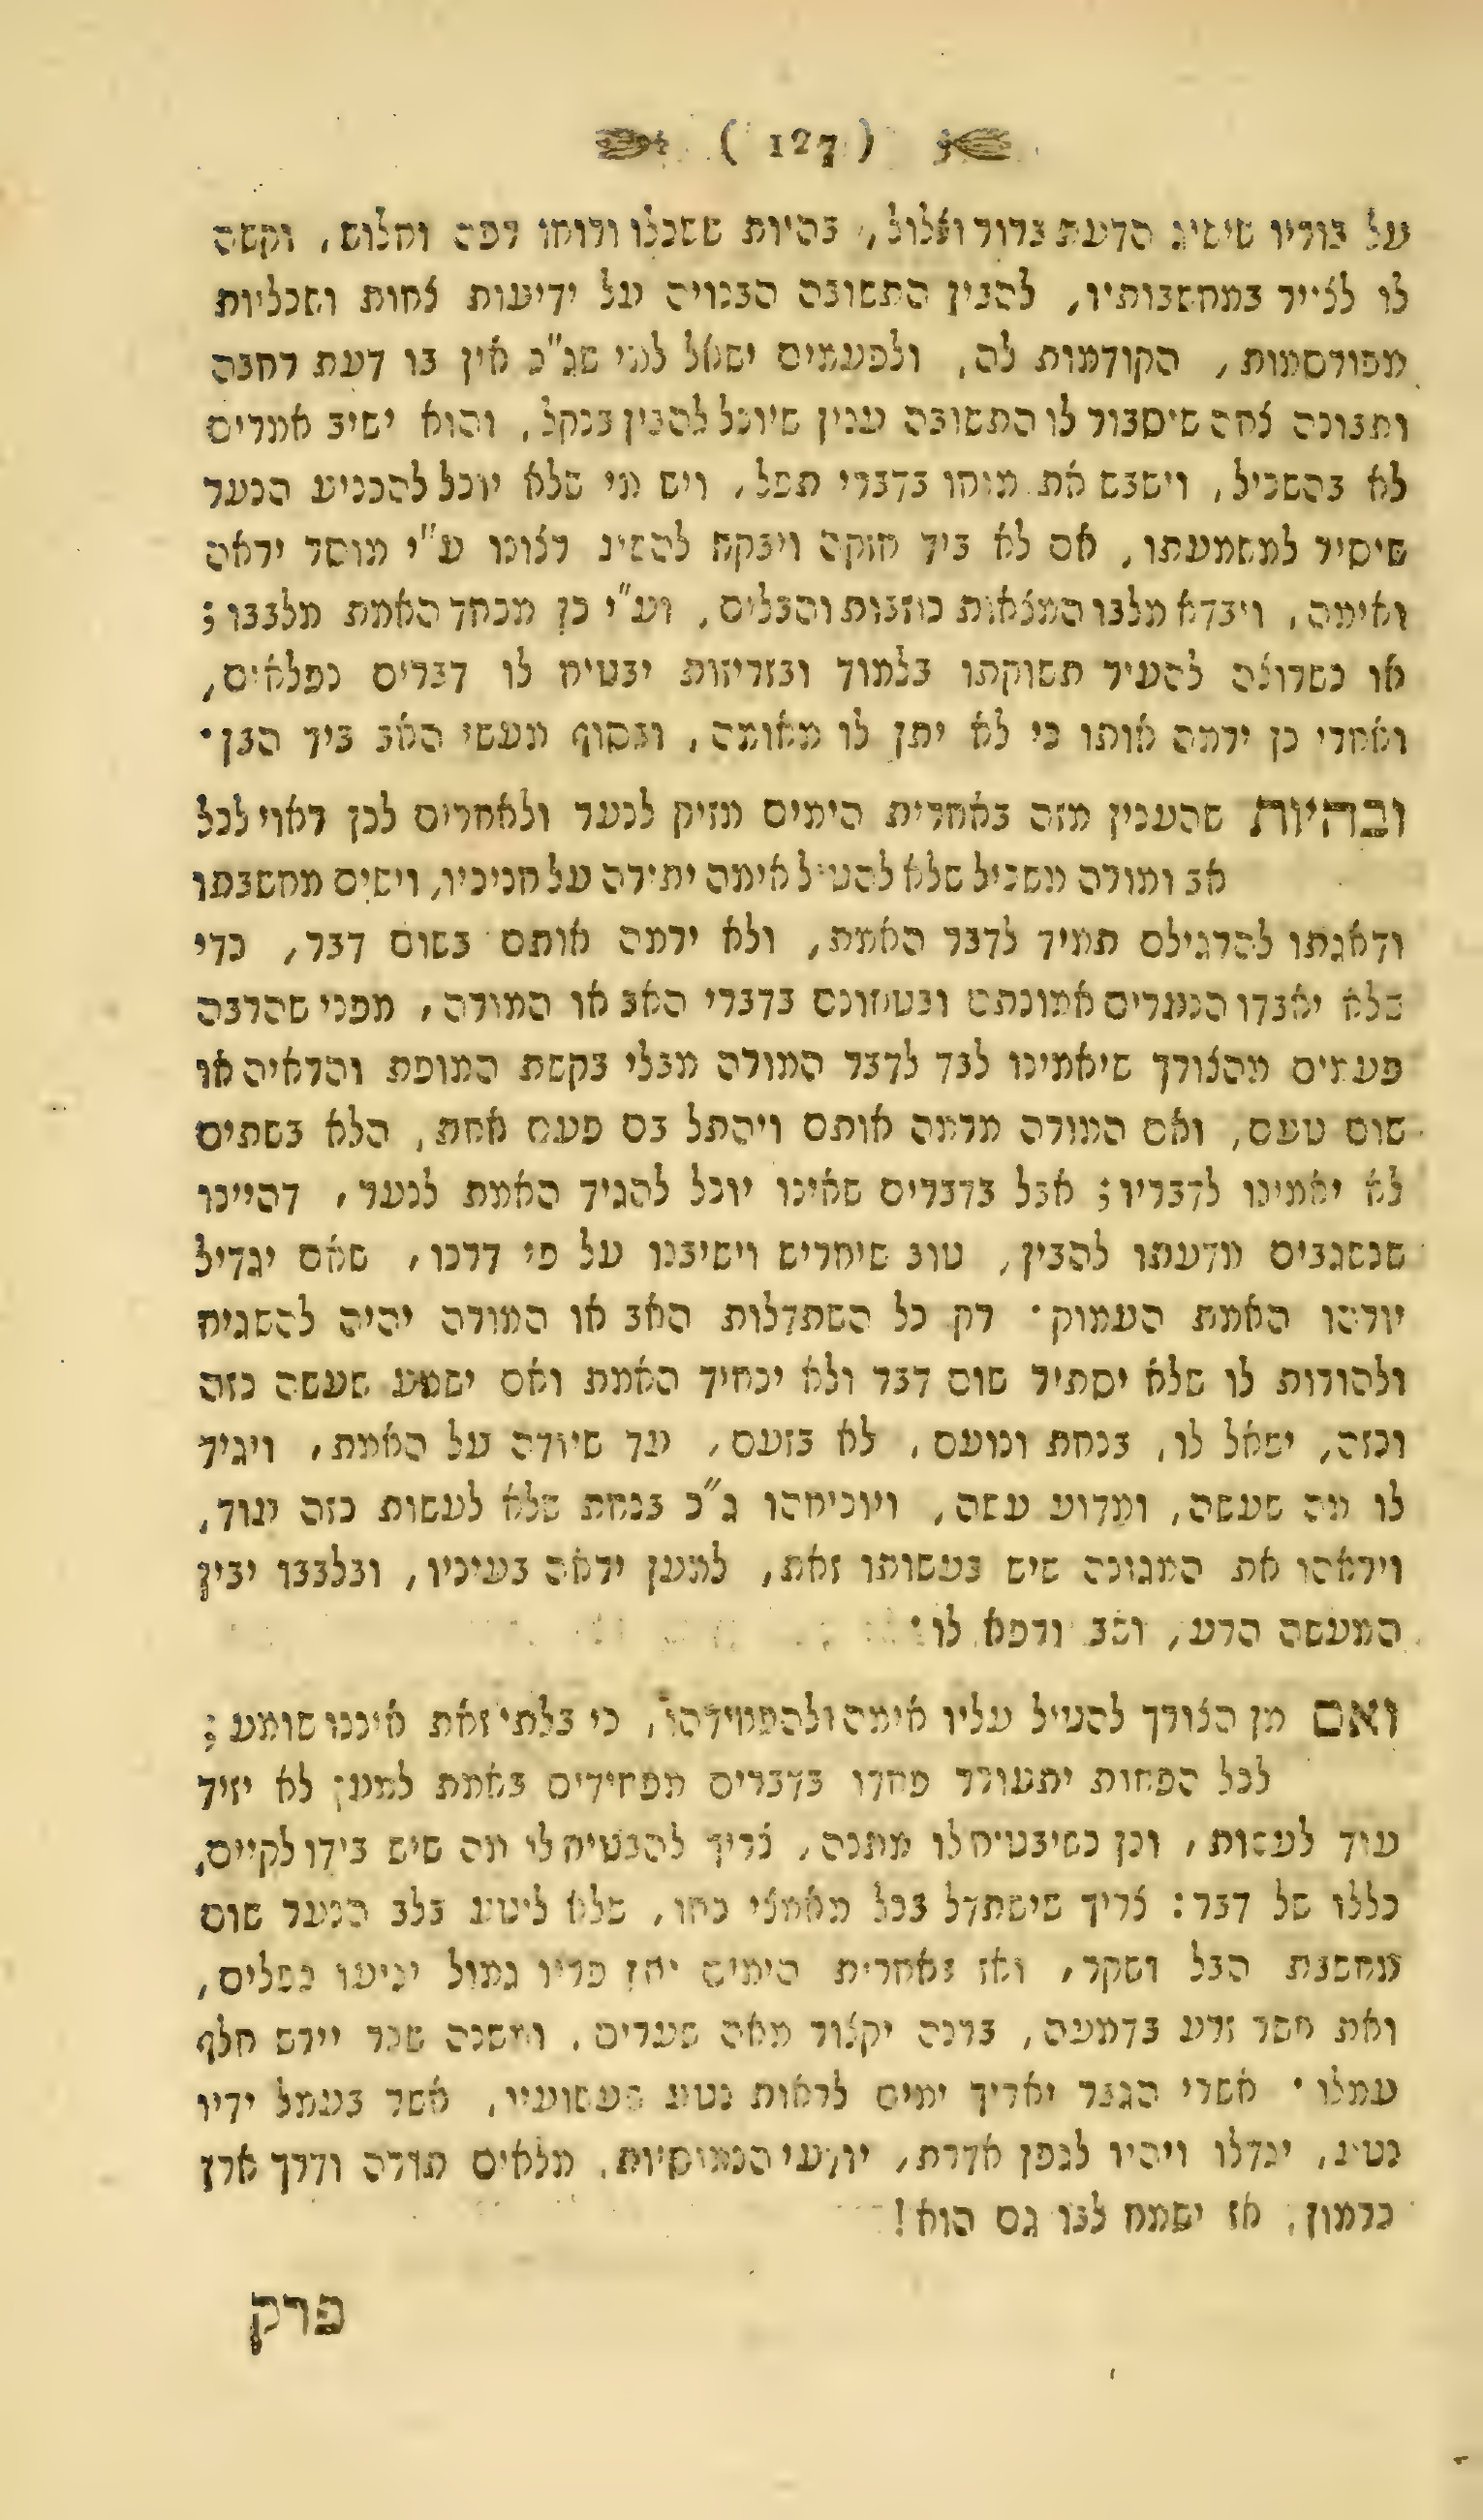 ( 127 )
על בוריו שישיג הדעת ברור וצלול, בהיות ששכלו ורוחו רפה וחלוש, וקשה
לו לצייר במחשבותיו, להבין התשובה הבנויה על ידיעות צחות ושכליות
מפורסמות, הקודמות לה, ולפעמים ישאל למי שג"כ אין בו דעת רחבה
ותבונה צחה שיסבור לו התשובה ענין שיוכל להבין בנקל, והוא ישיב אמרים
לא בהשכיל, וישבש את מוחו בדברי תפל, ויש מי שלא יוכל להכניע הנער
שיסיר למשמעתו, אם לא ביד חזקה ויבקש להשיג רצונו ע"י מוסר יראה
ואימה, ויבדא מלבו המצאות כוזבות והבלים, וע"י כן מכחד האמת מלבבו;
או כשרוצה להעיר תשוקתו בלמוד ובזריזות יבטיח לו דברים נפלאים,
ואחרי כן ירמה אותו כי לא יתן לו מאומה, ובסוף מעשי האב ביד הבן.
ובהיות שהענין מזה באחרית הימים מזיק לנער ולאחרים לכן ראוי לכל
אב ומורה משכיל שלא להטיל אימה יתירה על חניכיו, וישים מחשבתו
ודאגתו להרגילם תמיד לדבר האמת, ולא ירמה אותם בשום דבר, כדי
שלא יאבדו הנערים אמונתם ובטחונם בדברי האב או המורה, מפני שהרבה
פעמים מהצורך שיאמינו לבד לדבר המורה מבלי בקשת המופת והראיה או
שום טעם, ואם המורה מרמה אותם ויהתל בם פעם אחת, הלא בשתים
לא יאמינו לדבריו; אבל בדברים שאינו יוכל להגיד האמת לנער, דהיינו
שנשגבים מדעתו להבין, טוב שיחריש וישיבנו על פי דרכו, שאם יגדיל
יורהו האמת העמוק. רק כל השתדלות האב או המורה יהיה להשגיח
ולהורות לו שלא יסתיר שום דבר ולא יכחיד האמת ואם ישמע שעשה כזה
וכזה, ישאל לו, בנחת ונועם, לא בזעם, עד שיודה על האמת, ויגיד
לו מה שעשה, ומדוע עשה, ויוכיחהו ג"כ בנחת שלא לעשות כזה עוד,
ויראהו את המגונה שיש בעשותו זאת, למען יראה בעיניו, ובלבבו יבין
המעשה הרע, ושב ורפא לו.
ואם מן הצורך להטיל עליו אימה ולהפחידהו, כי בלתי זאת איננו שומע;
לכל הפחות יתעורר פחדו בדברים מפחידים באמת למען לא יזיד
עוד לעשות, וכן כשיבטיח לו מתנה, צריך להבטיח לו מה שיש בידו לקיים,
כללו של דבר: צריך שישתדל בכל מאמצי כחו, שלא ליטע בלב הנער שום
מחשבת הבל ושקר, ואז באחרית הימים יתן פריו גמול יגיעו כפלים,
ואת אשר זרע בדמעה, ברנה יקצור מאה שערים, ומשנה שכר יירש חלף
עמלו. אשרי הגבר יאריך ימים לראות נטע שעשועיו, אשר בעמל ידיו
נטע, יגדלו ויהיו לגפן אדרת, יודעי הנמוסיות, מלאים תורה ודרך ארץ
כרמון, אז ישמח לבו גם הוא!
פרק